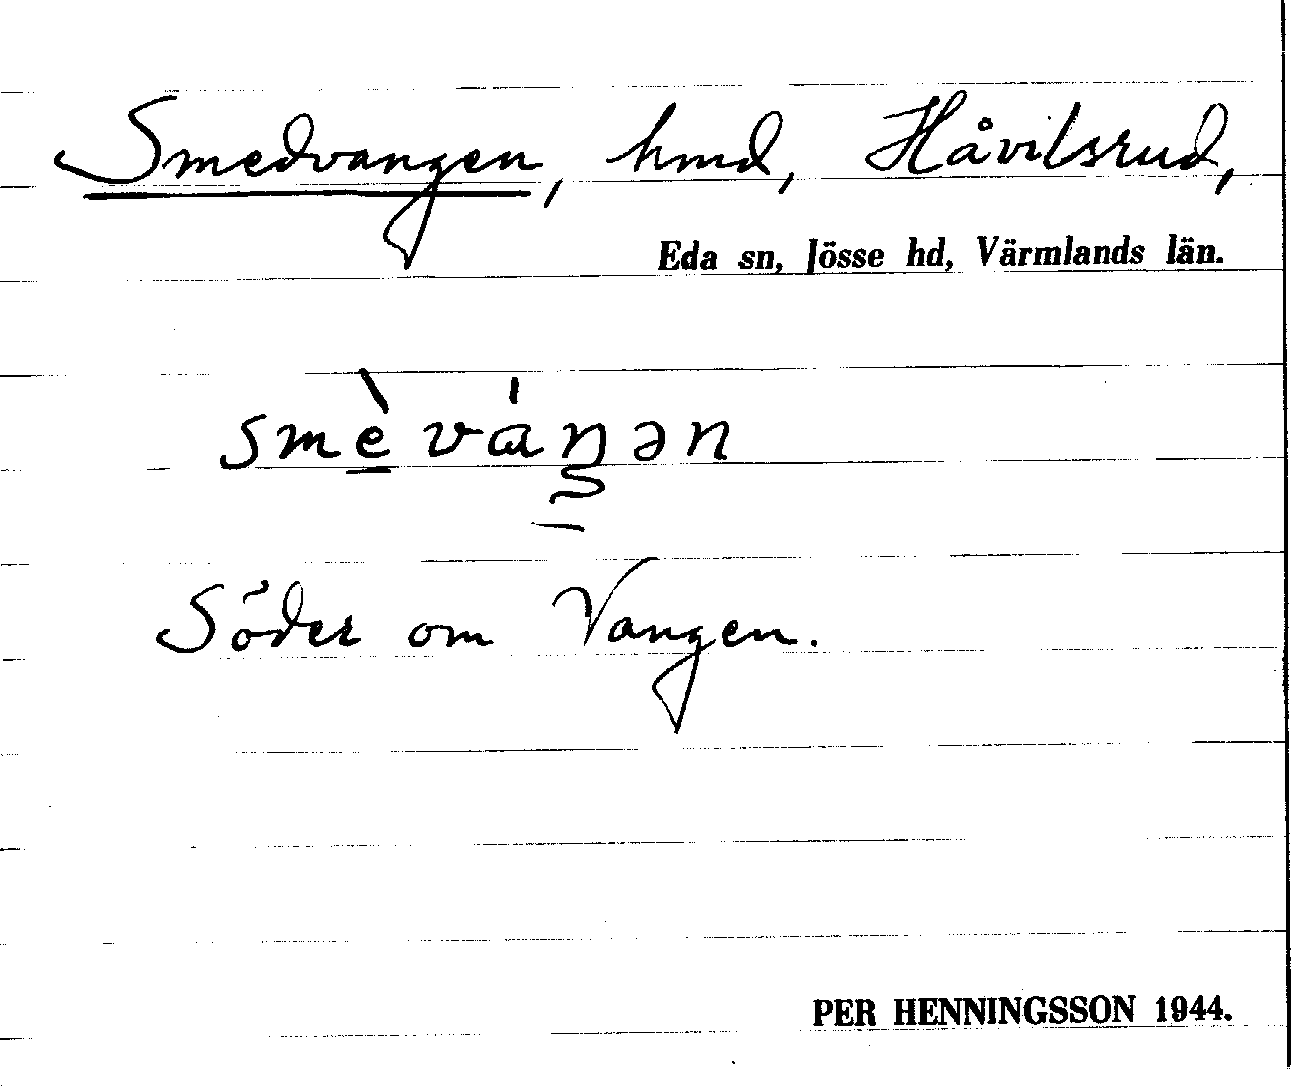 Smedvangen, hmd, Håvilsrud,
Eda sn, Jösse hd, Värmlands län.
smè̠váŋən
Söder om Vangen.
PER HENNINGSSON 1944.